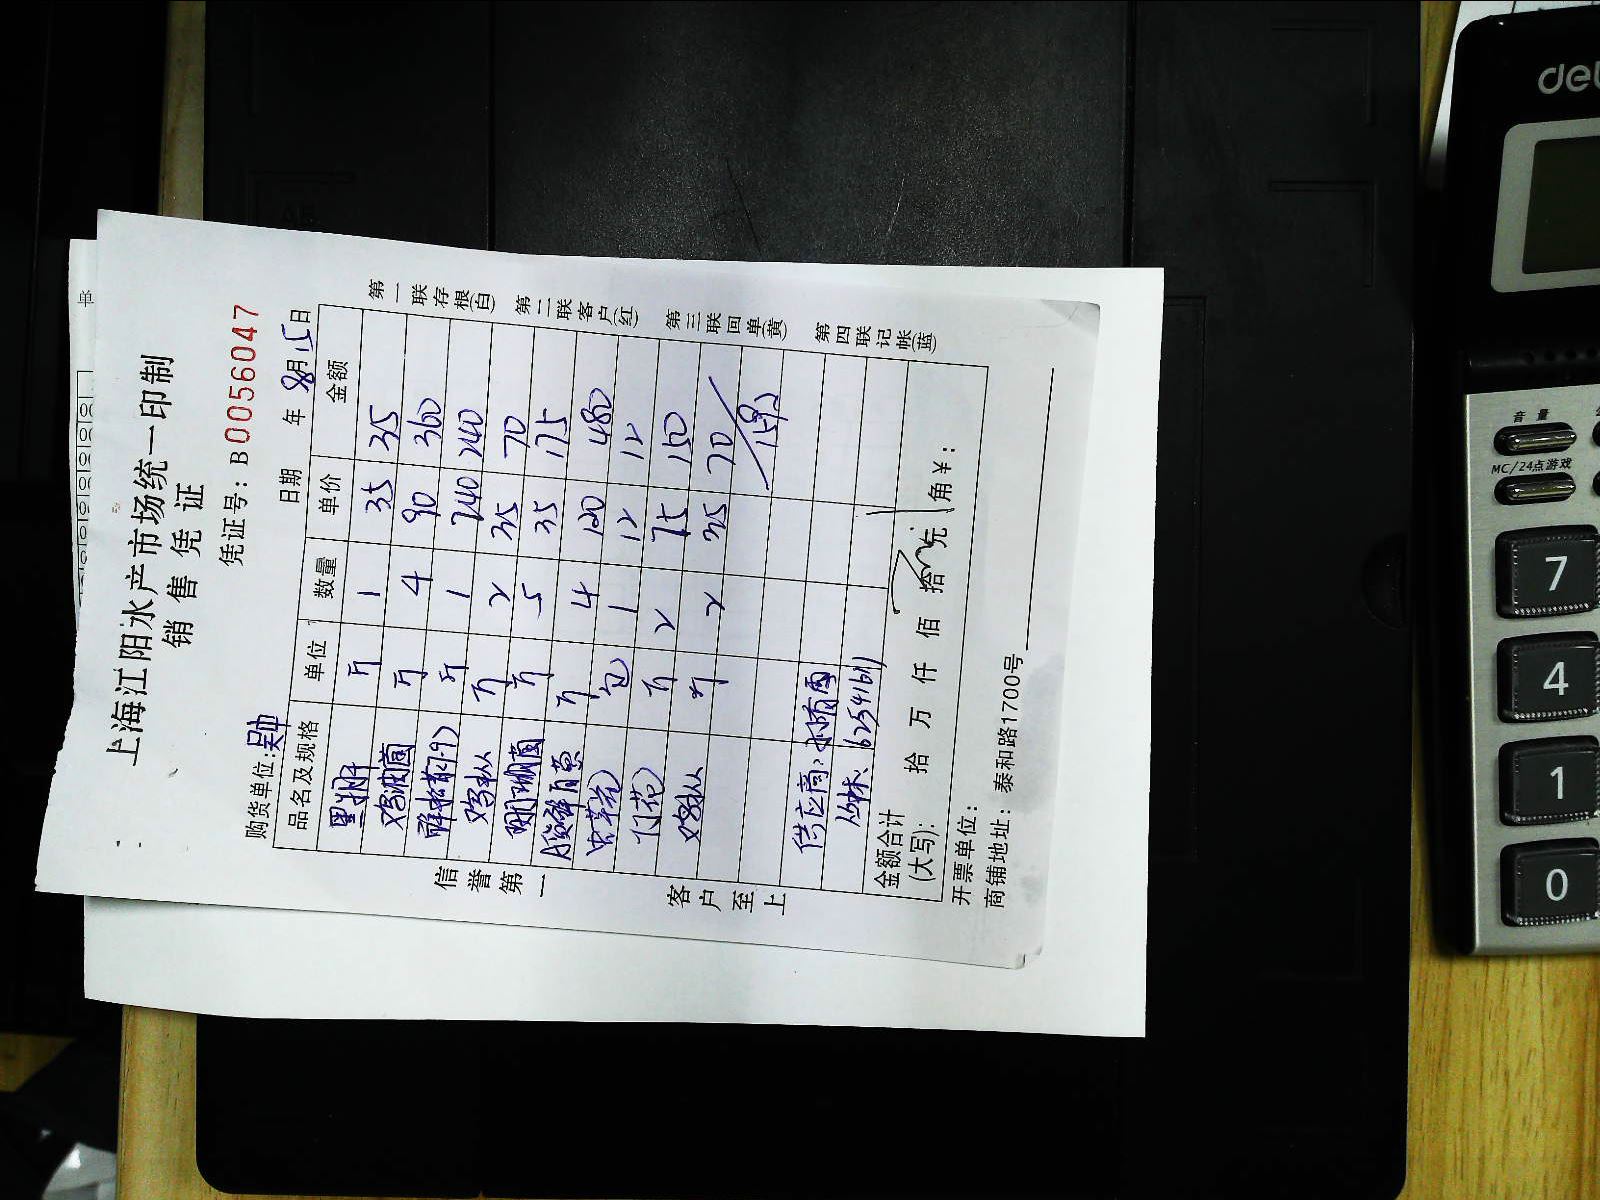 上海江阳水产市场统一印制
销售凭证
凭证号: B0056047
购货单位: 吴中 日期 年 8月15日
品名及规格 单位 数量 单价 金额
斤 1 35 35
鸡油菌 斤 4 90 360
斤 1 240 240
鸡枞 斤 2 35 70
斤 5 35 175
斤 4 120 480
虫草花 包 1 12 12
竹花 斤 2 75 150
鸡枞 斤 2 35 70
1592
供应商:
62541611
金额合计
(大写): 拾 万 仟 佰 拾 元 角¥:
开票单位:
商铺地址: 泰和路1700号
信誉第一
客户至上
第一联存根(白)
第二联客户(红)
第三联回单(黄)
第四联记帐(蓝)
单
deli
音量
MC/24点游戏
7
4
1
0